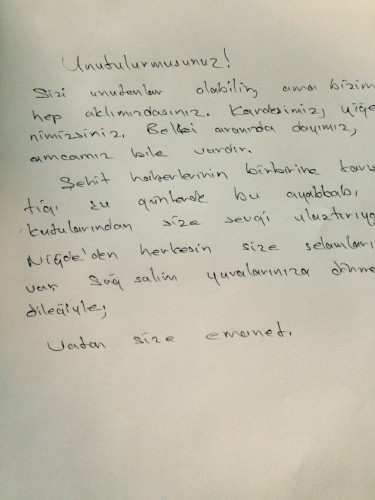 Unutulurmusunuz!
Sizi unutanlar olabilir, ama bizim
hep aklımızdasınız. Kardeşimiz, yiğe
nimizsiniz. Belki aranızda dayımız,
amcamız bile vardır.
Şehit haberlerinin birbirine karış
tığı şu günlerde bu ayakkabı
kutularından size sevgi ulaştırıyo
Niğde'den herkesin size selamları
var. Sağ salim yuvalarınıza dönme
dileğiyle;
Vatan size emanet.